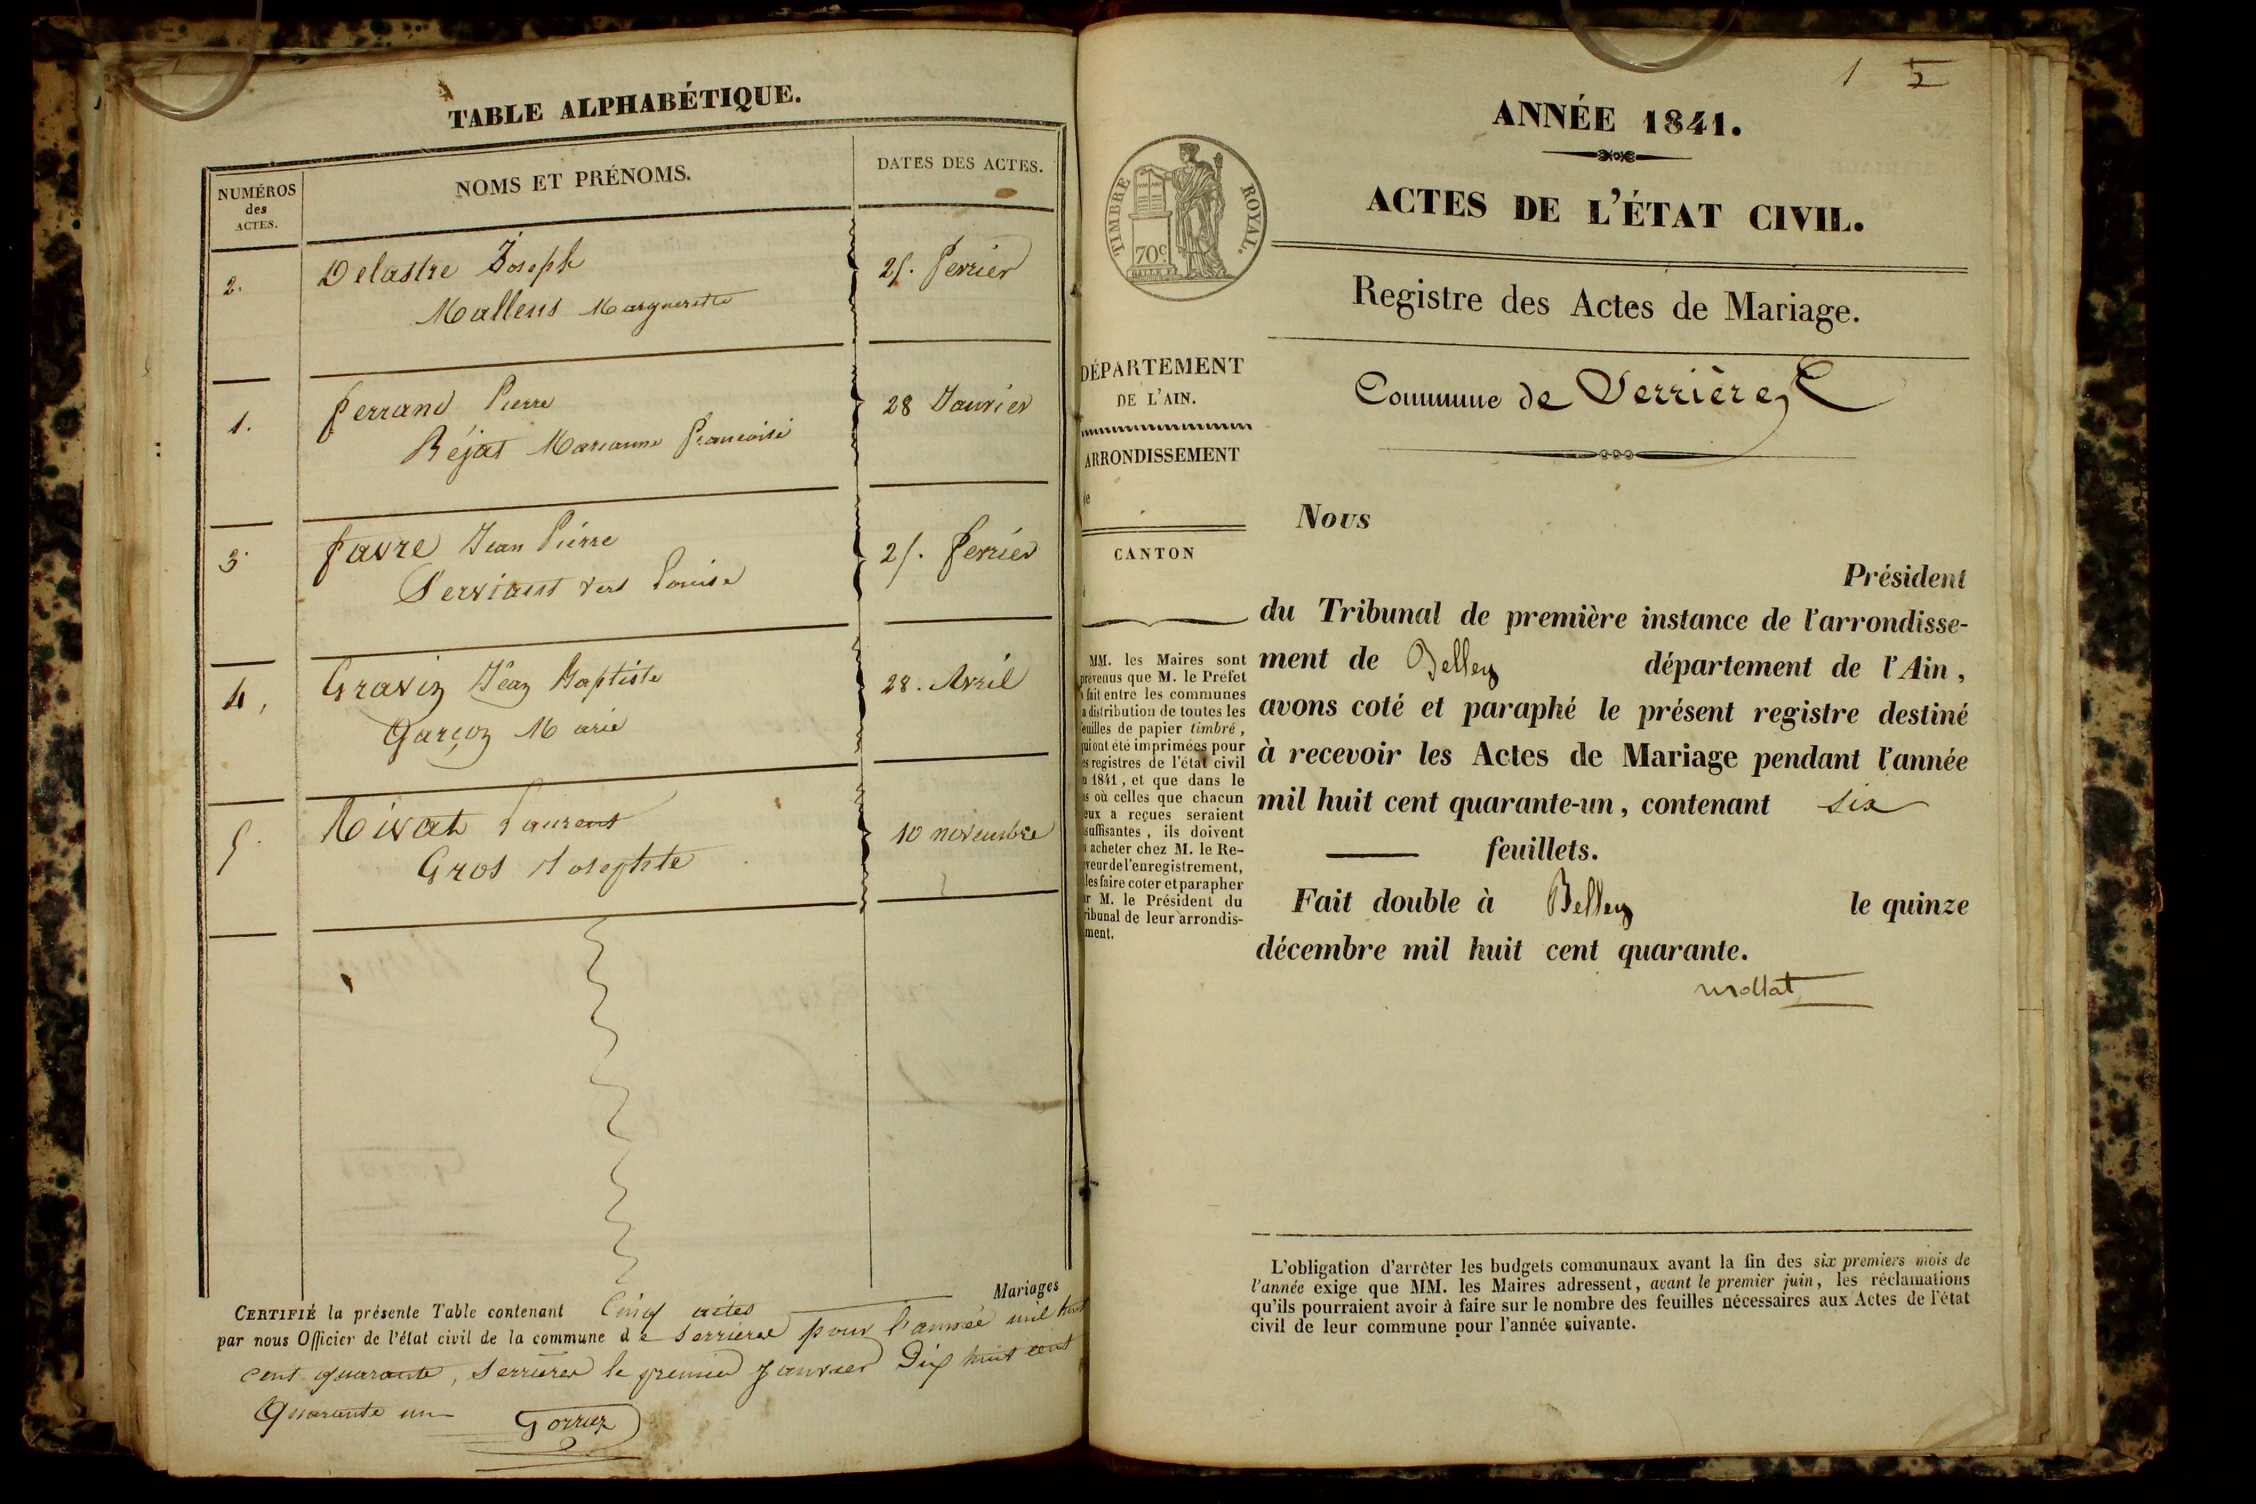 TABLE ALPHABÉTIQUE.
NUMÉROS
des
ACTES.
NOMS ET PRÉNOMS.
DATES DES ACTES.
2. Delastre Joseph 25. fevrier
Mallens Marguerite
1. ferrand Pierre 28 Janvier
Réjat Marianne francoise
3 favre Jean Pierre 25. fevrier
Serviant Louise
4, Gravin Jean Baptiste 28. Avril
Garçon Marie
5. Mivat Laurent 10 novembre
Gros Josephte
Mariages
CERTIFIÉ la présente Table contenant Cinq actes
par nous Officier de l'état civil de la commune de Serrières pour l'année mil huit
cent quarante, Serrières le premier janvier Dix huit cent
Quarante un
1
ANNÉE 1841.
ACTES DE L'ÉTAT CIVIL.
TIMBRE ROYAL.
70c.
Registre des Actes de Mariage.
DÉPARTEMENT
DE L'AIN.
ARRONDISSEMENT
CANTON
Commune de Serrières
MM. les Maires sont
prévenus que M. le Préfet
fait entre les communes
distribution de toutes les
feuilles de papier timbré,
qui ont été imprimées pour
registres de l'état civil
1841, et que dans le
où celles que chacun
eux a reçues seraient
suffisantes, ils doivent
acheter chez M. le Re-
veur de l'enregistrement,
les faire coter et parapher
M. le Président du
ribunal de leur arrondis-
ment.
Nous
Président
du Tribunal de première instance de l'arrondisse-
ment de Belley département de l'Ain,
avons coté et paraphé le présent registre destiné
à recevoir les Actes de Mariage pendant l'année
mil huit cent quarante-un, contenant six
feuillets.
Fait double à Belley le quinze
décembre mil huit cent quarante.
mollat
L'obligation d'arrêter les budgets communaux avant la fin des six premiers mois de
l'année exige que MM. les Maires adressent, avant le premier juin, les réclamations
qu'ils pourraient avoir à faire sur le nombre des feuilles nécessaires aux Actes de l'état
civil de leur commune pour l'année suivante.